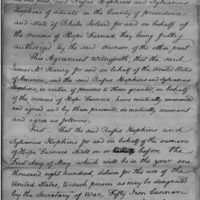 and Rufus Hopkins and Sylvanus
Hopkins of Scituate in the County of providence
and State of Rhode Island for and on behalf of
the owners of Hope Furnace they being fully
authorized by the said owners of the other part
This Agreement Witnesseth, that the said
James McHenry for and on behalf of the United States
of America, and the said Rufus Hopkins and Sylvanus
Hopkins, in virtue of powers to them granted, on behalf of
the owners of Hope Furnace, have mutually covenanted
and agreed and by these presents, do mutually covenant
and agree as follows,
First That the said Rufus Hopkins and
Sylvanus Hopkins for and on behalf of the owners
of Hope Furnace Shall on or before The
First day of May which will be in the year one
thousand eight hundred, deliver for the use of the
United States, to such person as may be designated
by the Secretary of War, Fifty Iron Cannon